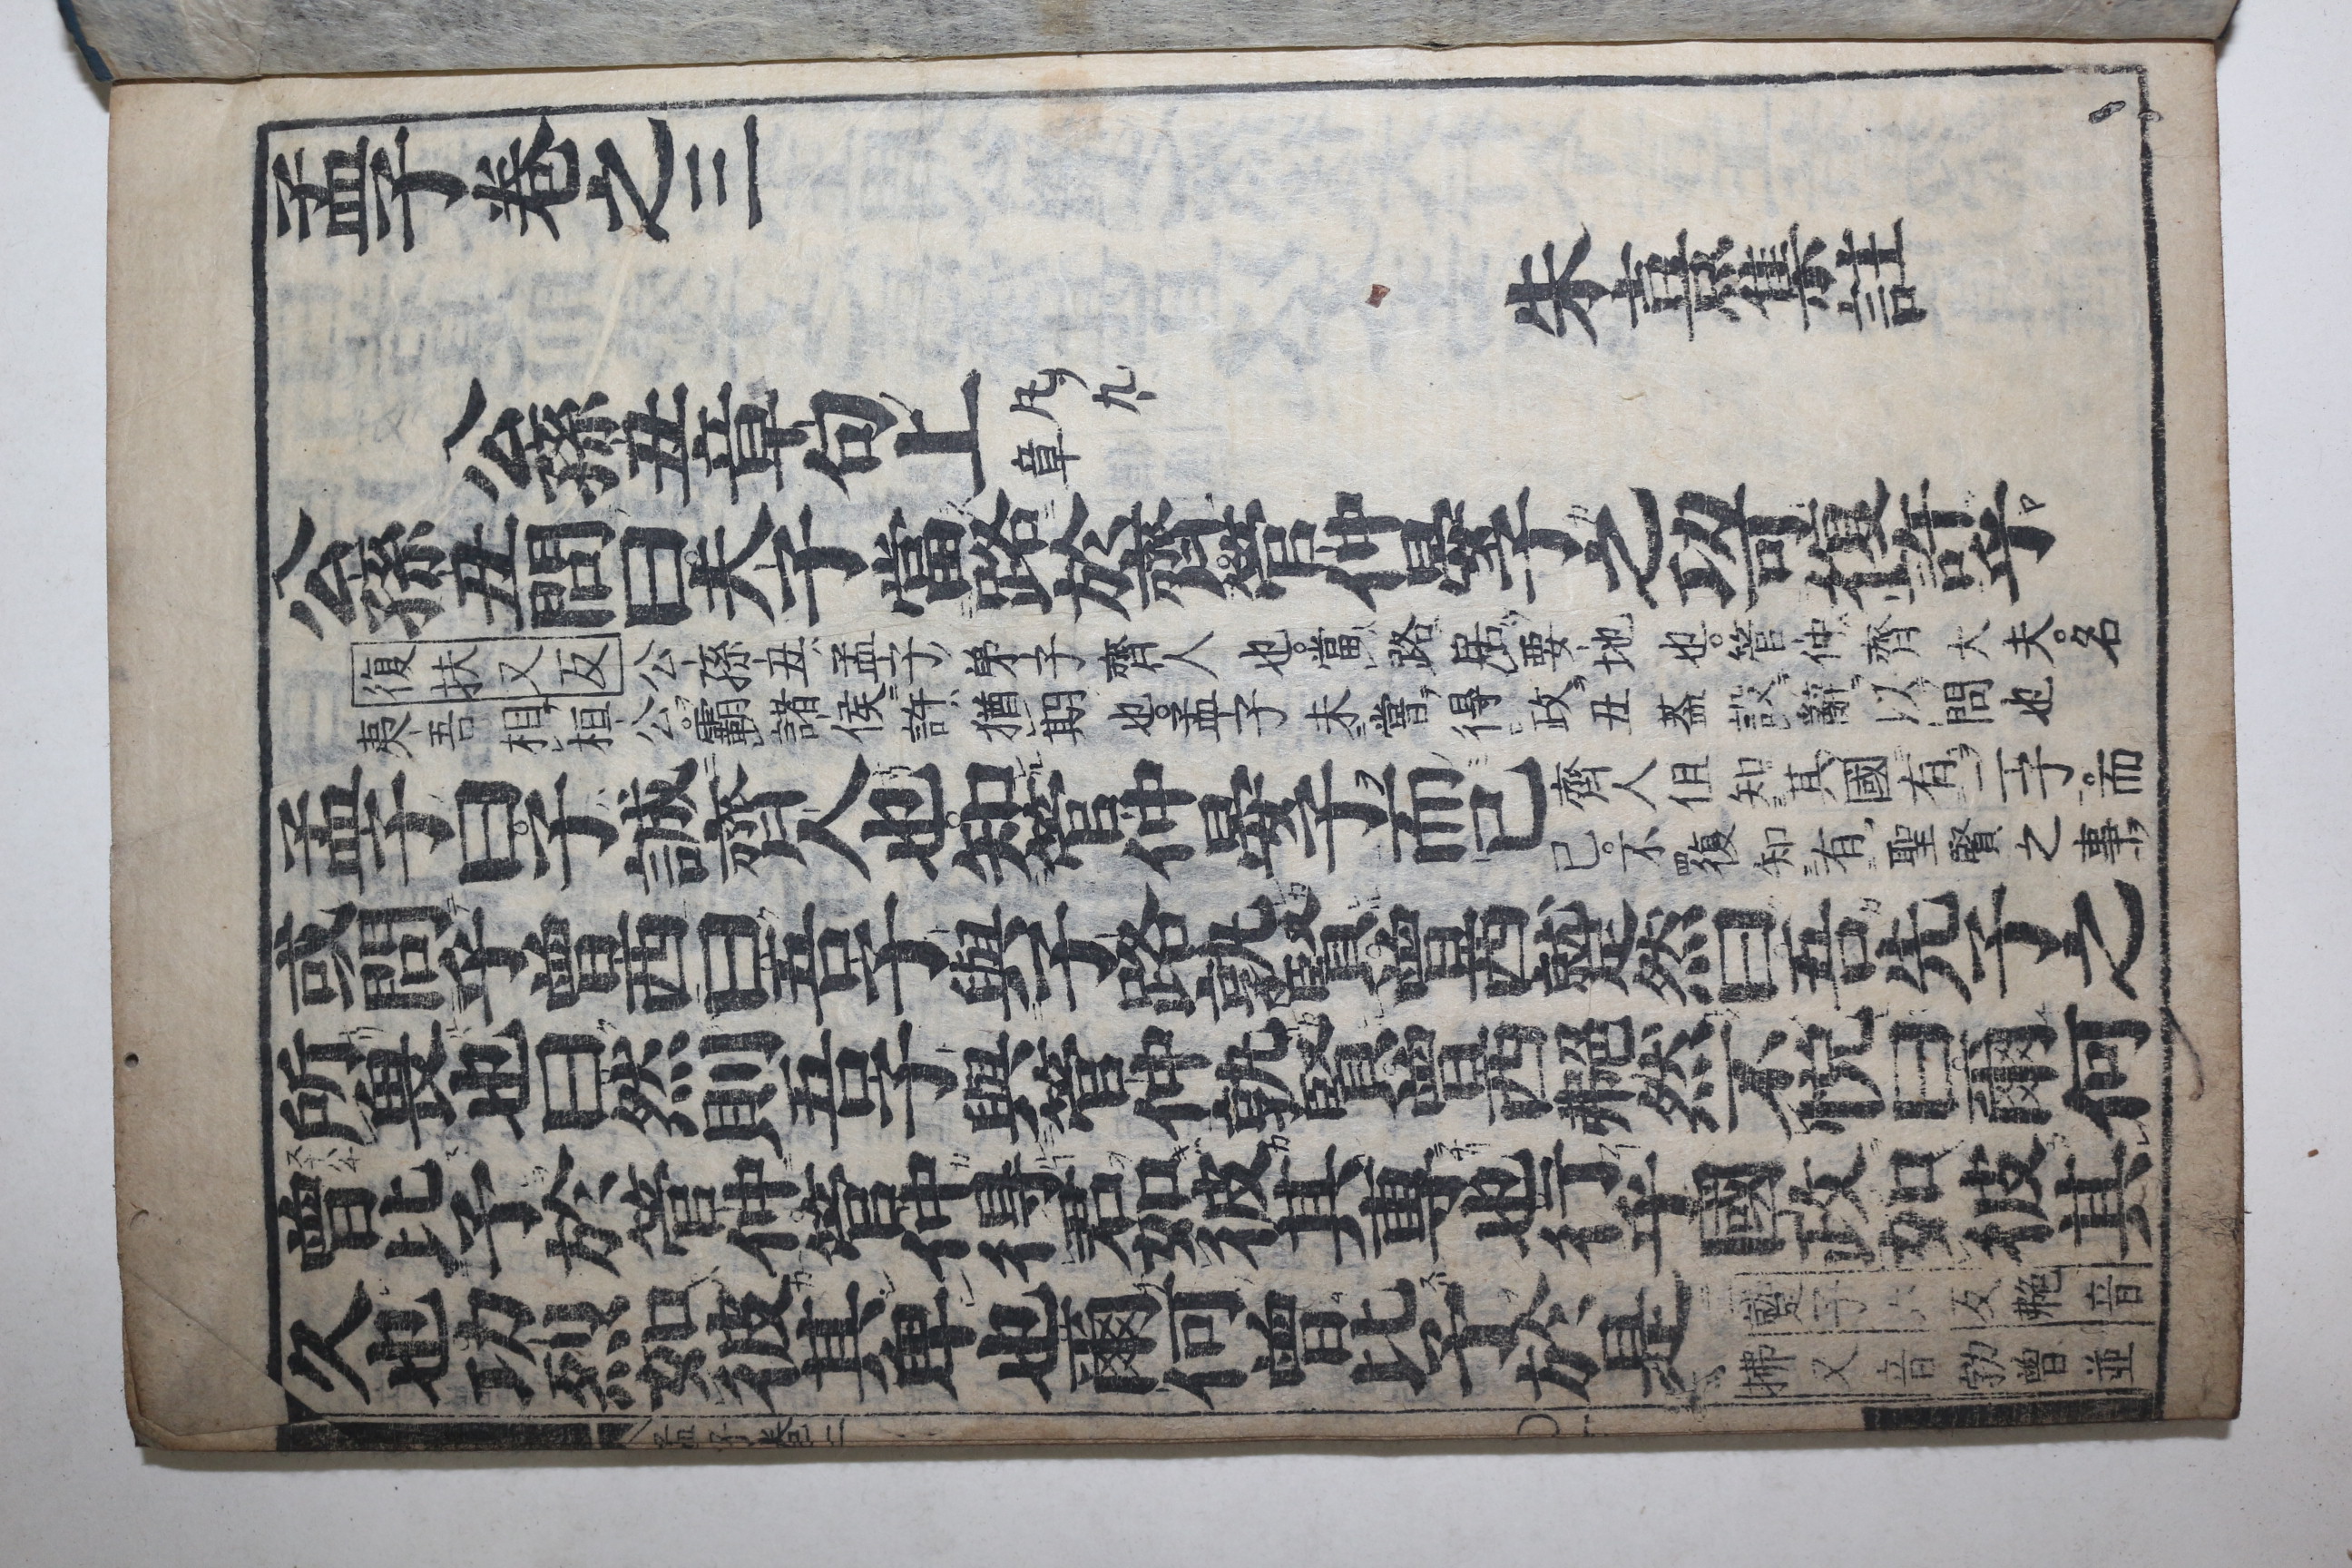 孟子卷之三
朱熹集註
公孫丑章句上 凡九章
公孫丑問曰夫子當路於齊管仲晏子之功可復許乎
復扶又反 公孫丑孟子弟子齊人也當路居要地也管仲齊大夫名
夷吾相桓公霸諸侯許猶期也孟子未嘗得政丑蓋設辭以問也
孟子曰子誠齊人也知管仲晏子而已 齊人但知其國有二子而
已不復知有聖賢之事
或問乎曾西曰吾子與子路孰賢曾西蹵然曰吾先子之
所畏也曰然則吾子與管仲孰賢曾西艴然不悅曰爾何
曾比予於管仲管仲得君如彼其專也行乎國政如彼其
久也功烈如彼其卑也爾何曾比予於是 蹵子六反艴音
拂又音勃曾並
孟子卷三